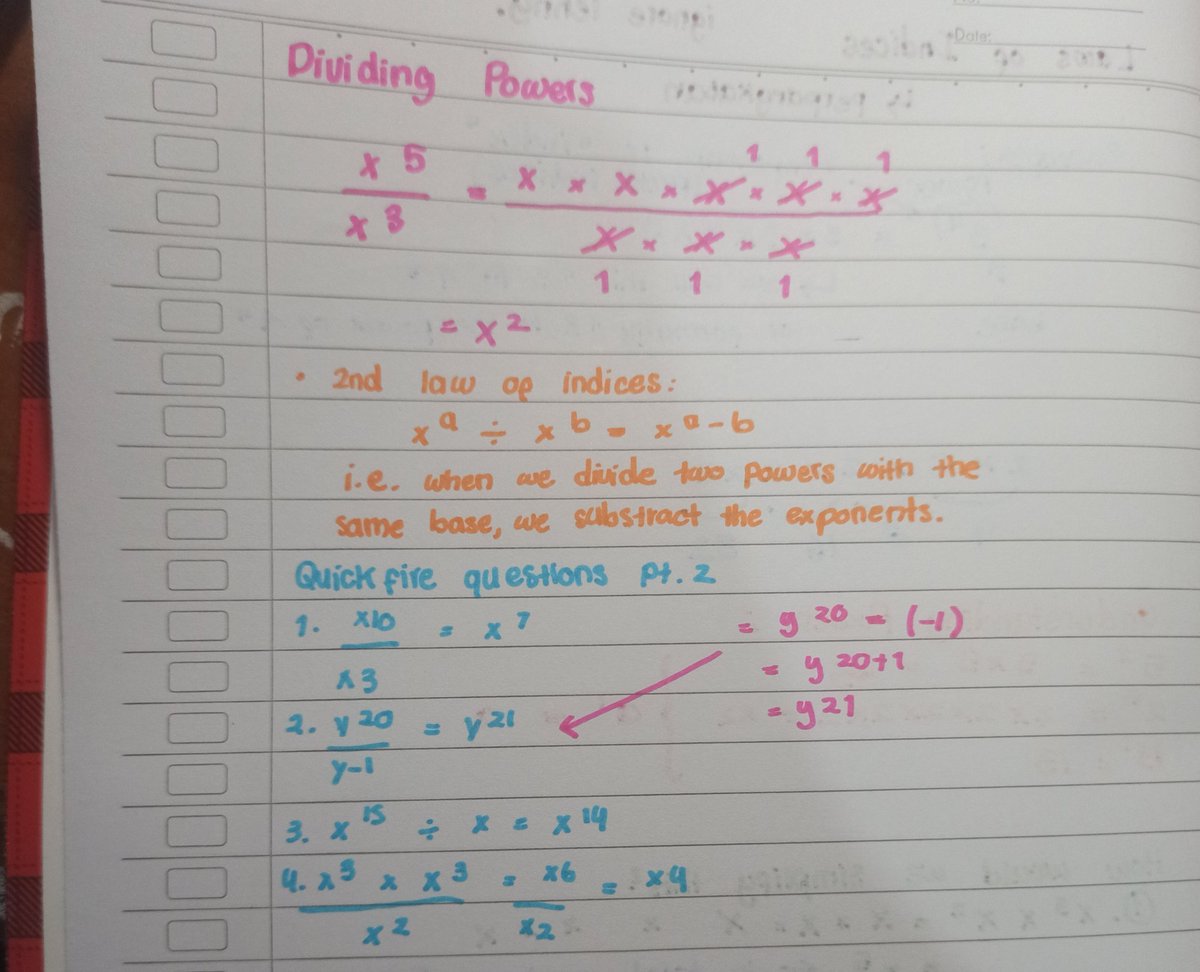 Date:
Dividing Powers
x⁵/x³ = (x × x × x × x × x)/(x × x × x)
1 1 1
1 1 1
= x²
• 2nd law op indices:
xᵃ ÷ xᵇ = xᵃ⁻ᵇ
i.e. when we divide two powers with the
same base, we substract the exponents.
Quick fire questions pt. 2
1. x10/x3 = x⁷
2. y²⁰/y-1 = y²¹
= y²⁰ - (-1)
= y²⁰⁺¹
= y²¹
3. x¹⁵ ÷ x = x¹⁴
4. (x³ × x³)/x² = x6/x2 = x4